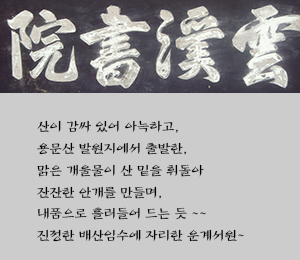 院書溪雲
산이 감싸 있어 아늑하고,
용문산 발원지에서 출발한,
맑은 개울물이 산 밑을 휘돌아
잔잔한 안개를 만들며,
내품으로 흘러들어 드는 듯 ~~
진정한 배산임수에 자리한 운계서원~